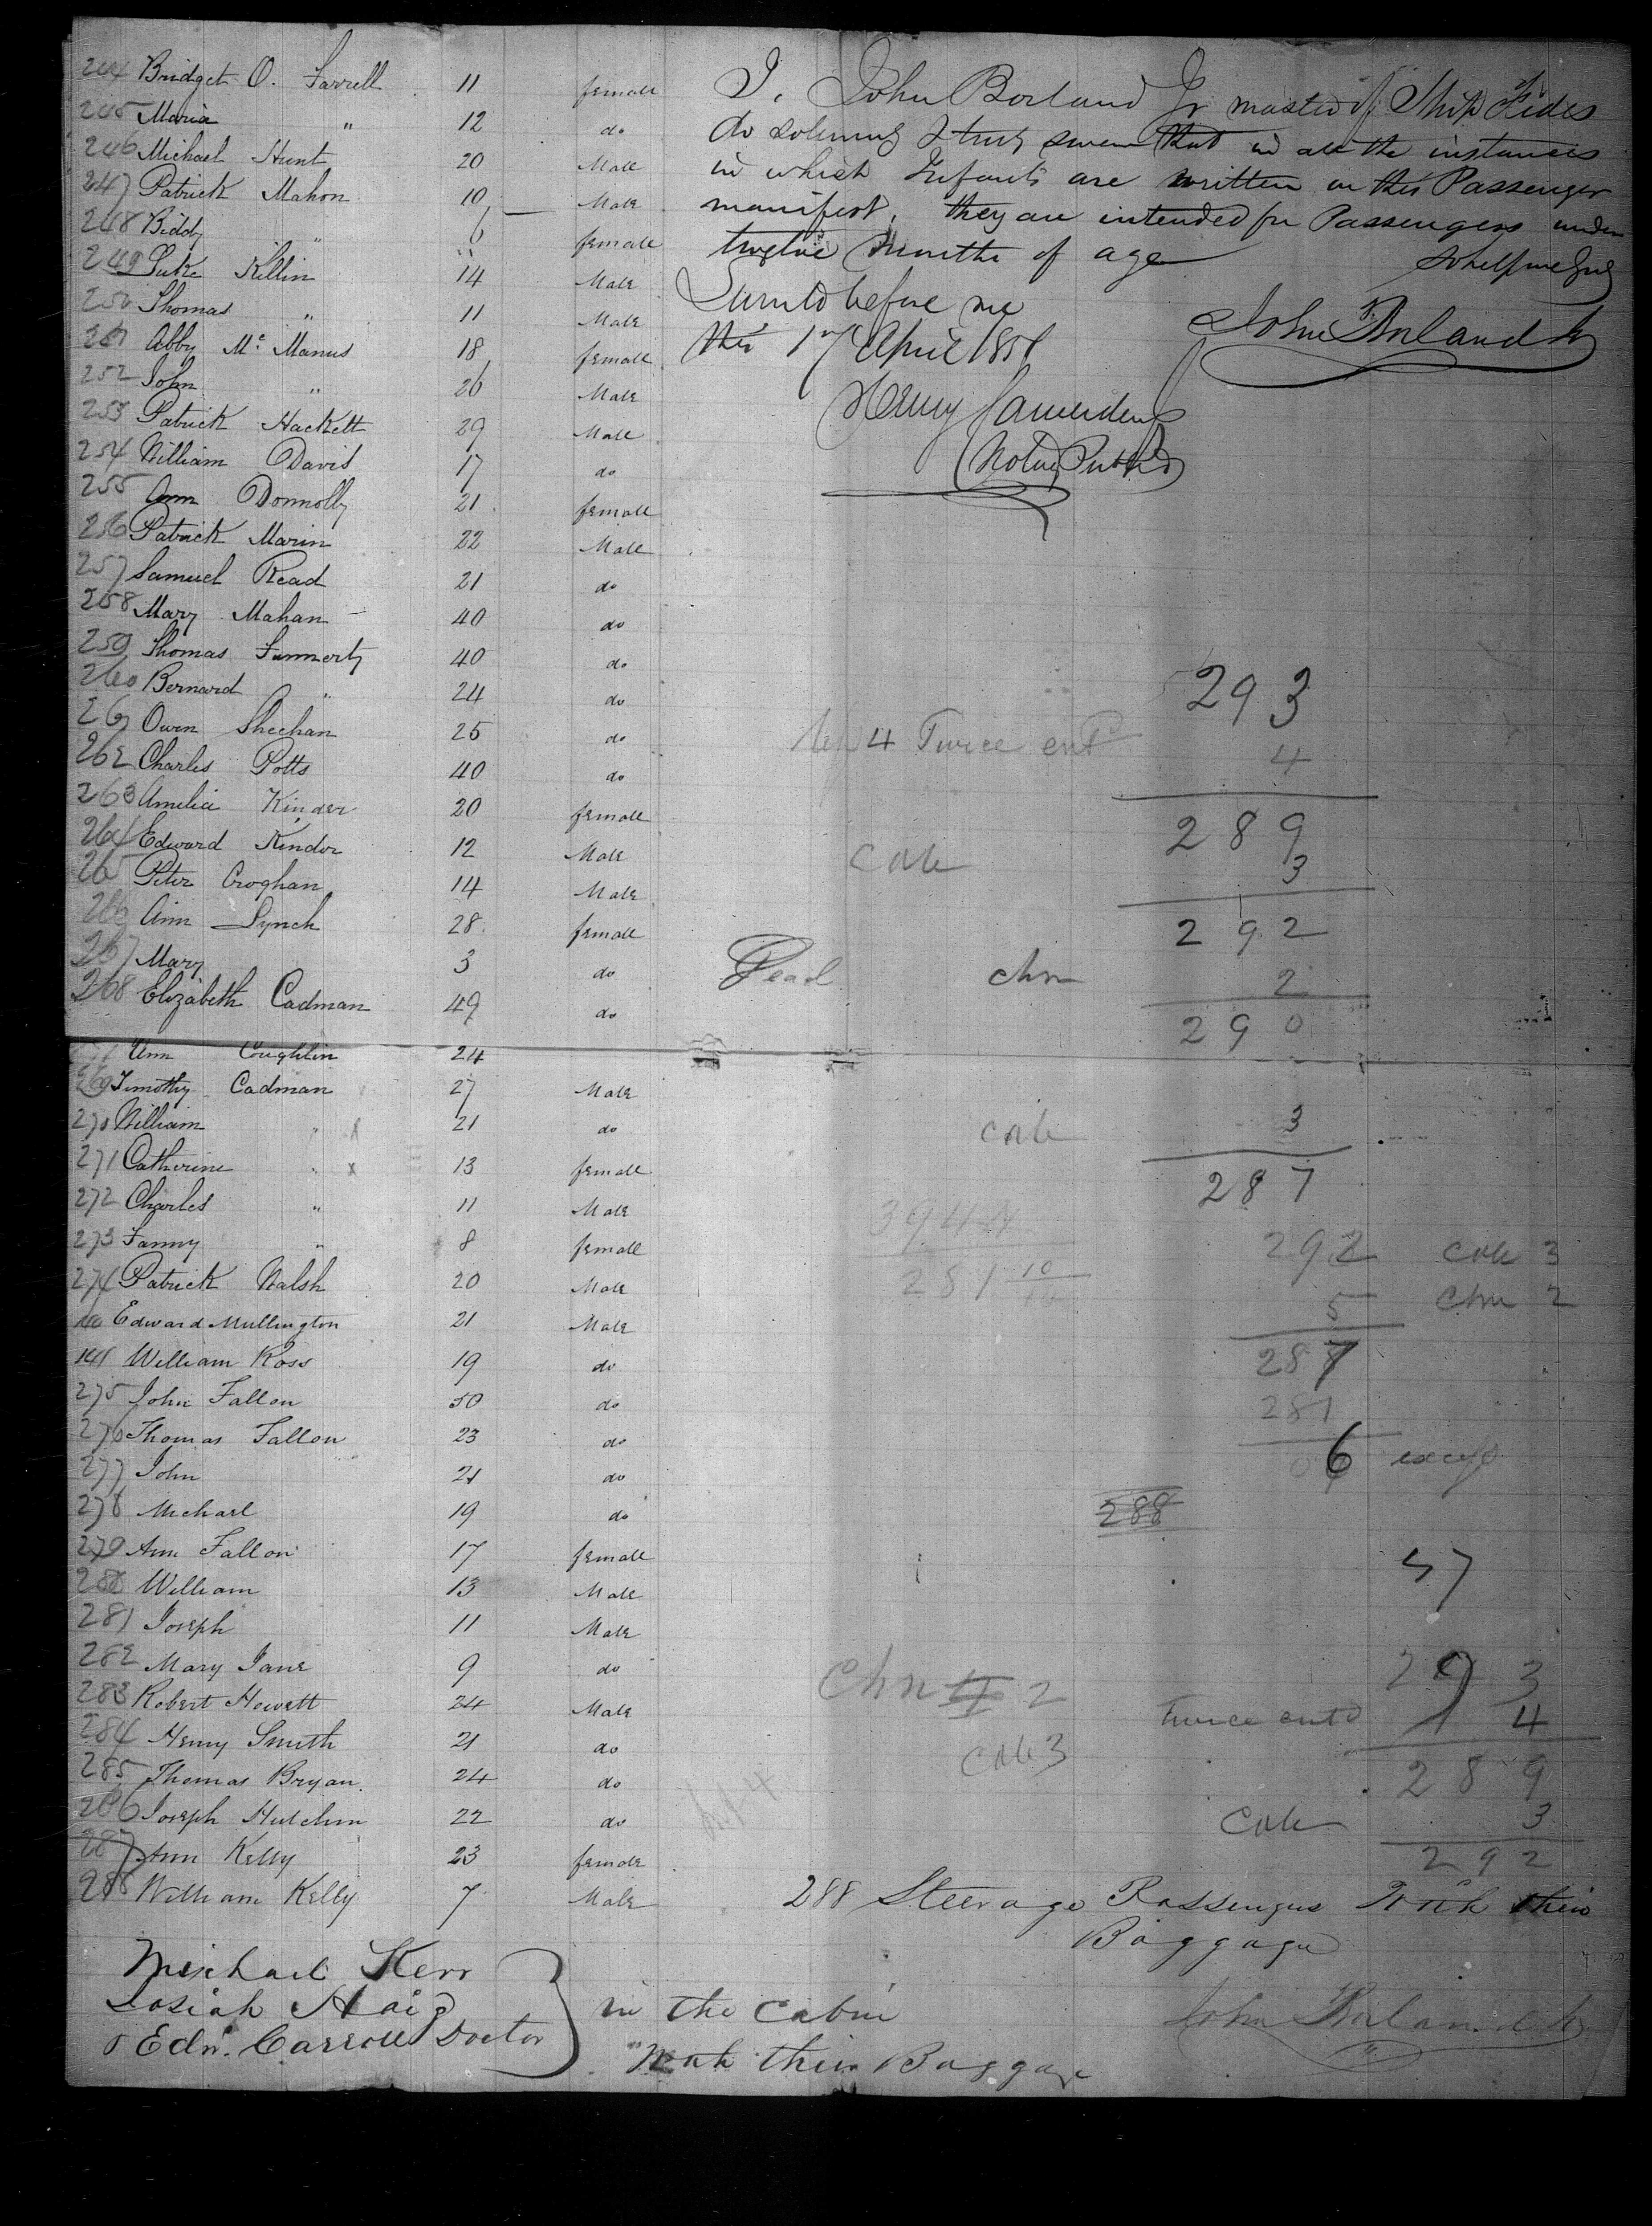 244 Bridget O. Farrell 11 female
245 Maria " 12 do
246 Michael Hunt 20 Male
247 Patrick Mahon 10 Male
248 Biddy " 6 female
249 Luke Killin 14 Male
250 Thomas " 11 Male
251 Abby Mc Manus 18 female
252 John " 26 Male
253 Patrick Hackett 29 Male
254 William Davis 17 do
255 Ann Donnolly 21 female
256 Patrick Marin 22 Male
257 Samuel Read 21 do
258 Mary Mahan 40 do
259 Thomas Finnerty 40 do
260 Bernard " 24 do
261 Owen Sheehan 25 do
262 Charles Potts 40 do
263 Amelia Kinder 20 female
264 Edward Kindor 12 Male
265 Peter Croghan 14 Male
266 Ann Lynch 28 female
267 Mary 3 do Dead
268 Elizabeth Cadman 49 do
Ann Coughlin 24
269 Timothy Cadman 27 Male
270 William " x 21 do
271 Catherine " x 13 female
272 Charles " 11 Male
273 Fanny " 8 female
274 Patrick Walsh 20 Male
Edward Mullington 21 Male
141 William Ross 19 do
275 John Fallon 50 do
276 Thomas Fallon 23 do
277 John 21 do
278 Michael 19 do
279 Ann Fallon 17 female
280 William 13 Male
281 Joseph 11 Male
282 Mary Jane 9 do
283 Robert Howett 24 Male
284 Henry Smith 21 do
285 Thomas Bryan 24 do
286 Joseph Hutchin 22 do
287 Ann Kelly 23 female
288 William Kelly 7 Male
Michael Kerr
Josiah Haig
Edw. Carroll Doctor
in the Cabin
with their Baggage
I, John Borland Jr master of Ship Fides
do solemnly & truly swear that in all the instances
in which Infants are written in this Passenger
manifest, they are intended for Passengers under
twelve months of age
So help me God
Sworn to before me
this 17 April 1851
John Borland Jr
Henry
Notary Public
293
4 Twice entd 4
289
3
292
chn 2
290
3
287
394
281 10
292 3
5 Chn 2
287
281
6
288
57
Chn 2
3
293
twice entd 4
289
3
292
288 Steerage Passengers With their
Baggage
John Borland Jr